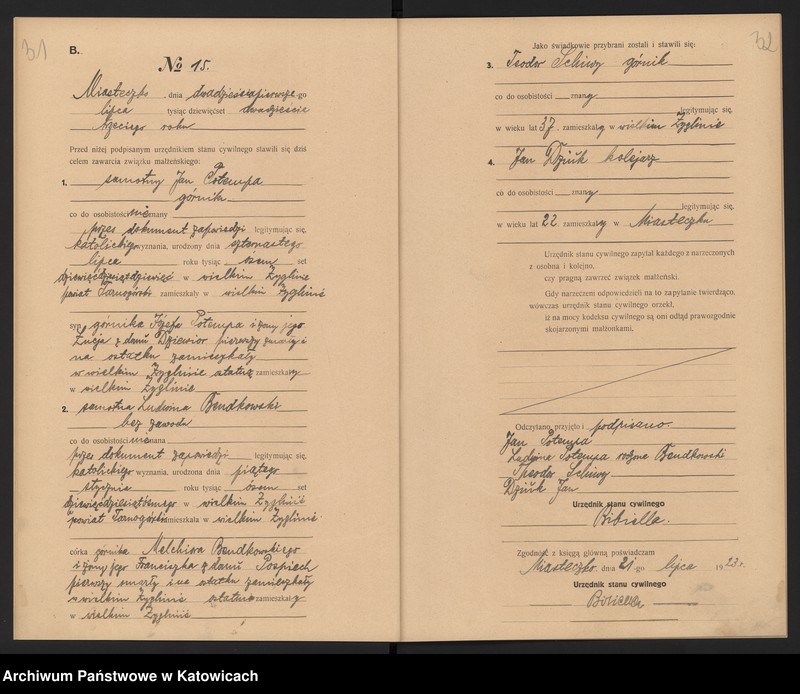 31
B.
№ 15.
Miasteczko, dnia dwudziestapierwszego
lipca tysiąc dziewięćset dwadzieścia
trzeciego roku
Przed niżej podpisanym urzędnikiem stanu cywilnego stawili się dziś
celem zawarcia związku małżeńskiego:
1. samotny Jan Potempa
górnik
co do osobistości nieznany
przez dokument zapowiedzi legitymując się,
katolickiego wyznania, urodzony dnia
lipca roku tysiąc ośem set
dziewięćdziesiątdziewięć w wielkim Żyglinie
powiat Tarnogórski zamieszkały w wielkim Żyglinie
syn górnika Józefa Potempa i żony jego
Łucja z domu Dziewior pierwszy zmarły i
na ostatku zamieszkały
w wielkim Żyglinie ostatnia zamieszkały
w wielkim Żyglinie
2. samotna Ludwina Bendkowski
bez zawodu
co do osobistości nieznana
przez dokument zapowiedzi legitymując się,
katolickiego wyznania, urodzona dnia piątego
stycznia roku tysiąc ośem set
w wielkim Żyglinie
powiat Tarnogórski zamieszkała w wielkim Żyglinie
córka górnika Melchiora Bendkowskiego
i żony jego Franciszka z domu Pospiech
pierwszy zmarły i na ostatku zamieszkały
w wielkim Żyglinie ostatnia zamieszkały
w wielkim Żyglinie
32
Jako świadkowie przybrani zostali i stawili się:
3. Teodor Schiwy górnik
co do osobistości znany
legitymując się,
w wieku lat 37 zamieszkały w wielkim Żyglinie
4. Jan Dziuk kolejarz
co do osobistości znany
legitymując się,
w wieku lat 22 zamieszkały w Miasteczku
Urzędnik stanu cywilnego zapytał każdego z narzeczonych
z osobna i kolejno,
czy pragną zawrzeć związek małżeński.
Gdy narzeczeni odpowiedzieli na to zapytanie twierdząco,
wówczas urzędnik stanu cywilnego orzekł,
iż na mocy kodeksu cywilnego są oni odtąd prawozgodnie
skojarzonymi małżonkami.
Odczytano, przyjęto i podpisano
Jan Potempa
Ludwina Potempa rodzone Bendkowski
Theodor Schiwy
Dziuk Jan
Urzędnik stanu cywilnego
Bibiella.
Zgodność z księgą główną poświadczam
Miasteczko, dnia 21-go lipca 1923 r.
Urzędnik stanu cywilnego
Bibiella
Archiwum Państwowe w Katowicach